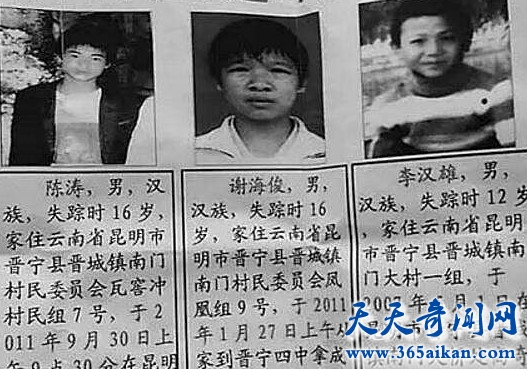 陈涛，男，汉
族，失踪时16岁，
家住云南省昆明市
晋宁县晋城镇南门
村民委员会瓦窑冲
村组7号，于2
011年9月30日上
午9点30分在昆明
谢海俊，男，
汉族，失踪时16
岁，家住云南省昆
明市晋宁县晋城镇
南门村民委员会凤
凰组9号，于2011
年1月27日上午从
家到晋宁四中拿成
李汉雄，男，
汉族，失踪时12岁，
家住云南省昆明
市晋宁县晋城镇南
门大村一组，于
200 年 月 日在
天天奇闻网
www.365aikan.com